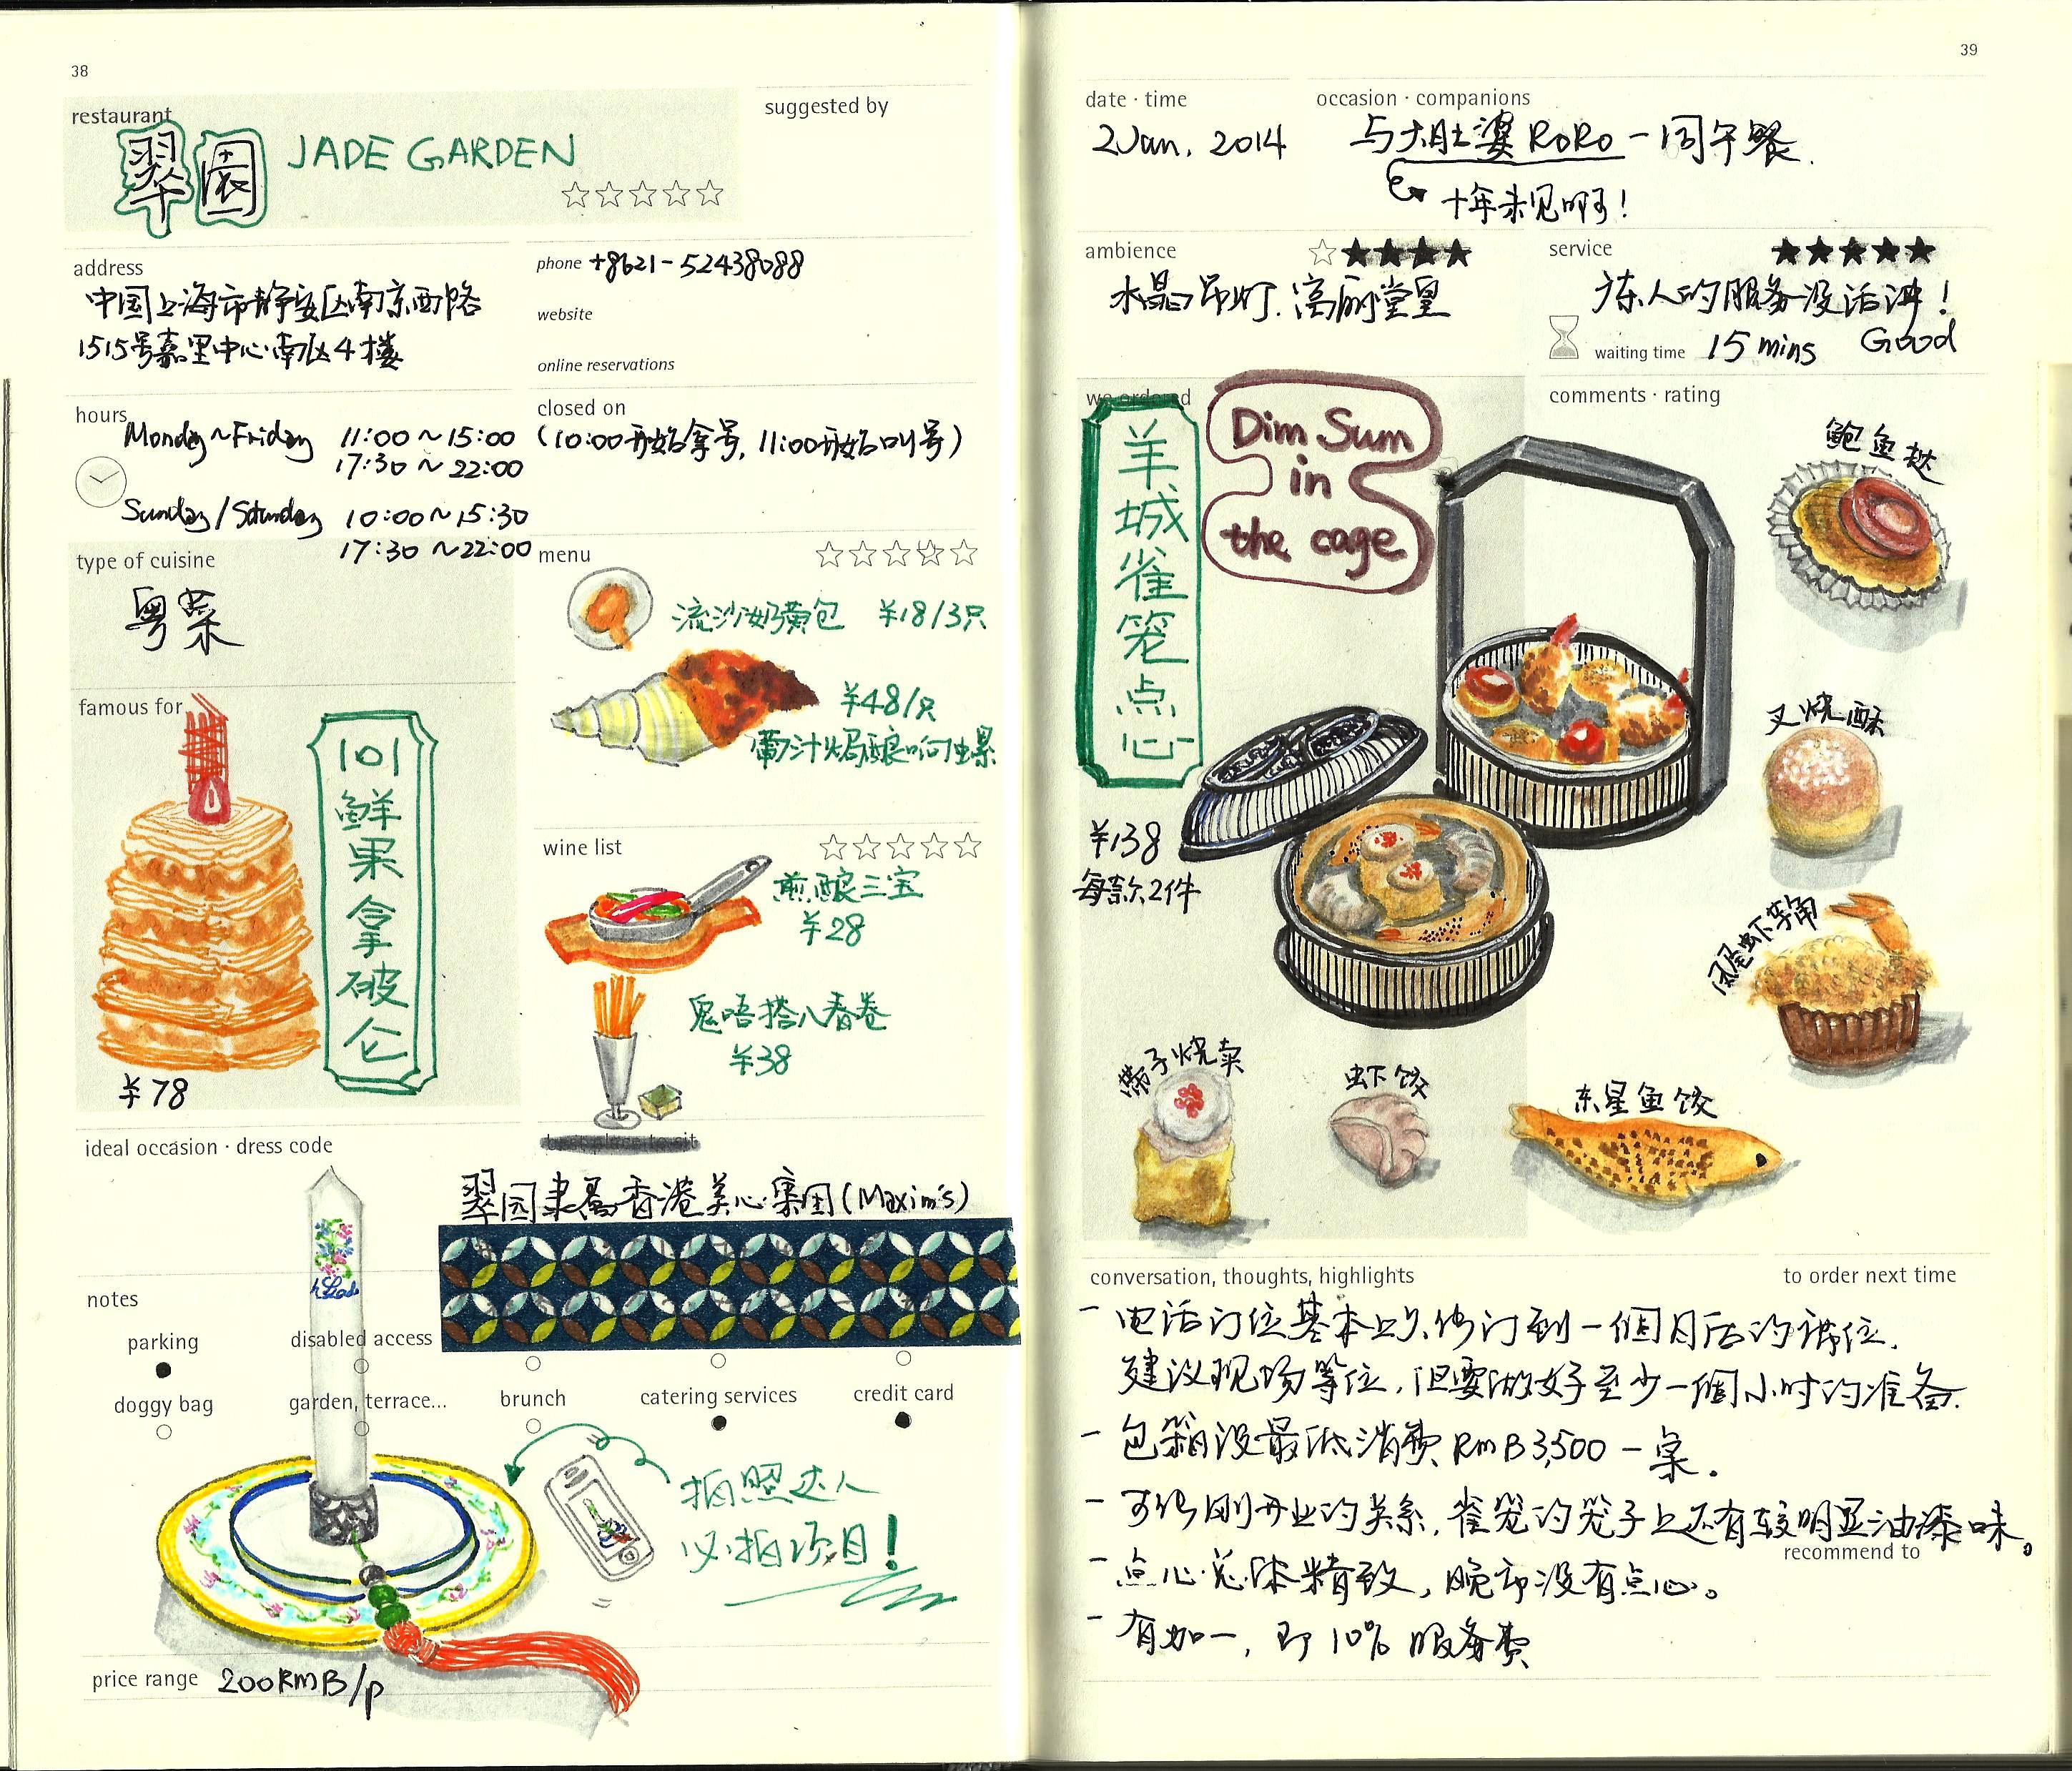 38
restaurant
翠園 JADE GARDEN
suggested by
address
中国上海市静安区南京西路
1515号嘉里中心南区4楼
phone +8621-52438088
website
online reservations
hours
Monday~Friday 11:00~15:00
17:30~22:00
Sunday/Saturday 10:00~15:30
17:30~22:00
closed on
(10:00开始拿号, 11:00开始叫号)
type of cuisine
粤菜
menu
流沙奶黄包 ¥18/3只
¥48/只
葡汁焗酿响螺
famous for
101鲜果拿破仑
¥78
wine list
煎酿三宝
¥28
鬼唔搭八春卷
¥38
ideal occasion · dress code
翠园隶属香港美心集团(Maxim's)
notes
parking
disabled access
doggy bag
garden, terrace...
brunch
catering services
credit card
拍照达人
必拍项目!
price range 200RMB/p
39
date · time
2Jan, 2014
occasion · companions
与大肚婆RoRo一同午餐.
十年未见啊!
ambience
水晶吊灯.高丽堂皇
service
广东人的服务没话讲!
waiting time 15 mins Good
we ordered
羊城雀笼点心
Dim Sum
in
the cage
comments · rating
鲍鱼挞
叉烧酥
凤尾虾芋角
¥138
每款2件
带子烧卖
虾饺
东星鱼饺
conversation, thoughts, highlights
to order next time
- 电话订位基本上只能订到一個月后的位.
建议现场等位,但要做好至少一個小时的准备.
- 包箱设最低消费RMB3,500一桌.
- 可能刚开业的关系,雀笼的笼子上还有较明显油漆味。
recommend to
- 点心总体精致,晚市没有点心。
- 有加一,即10%服务费